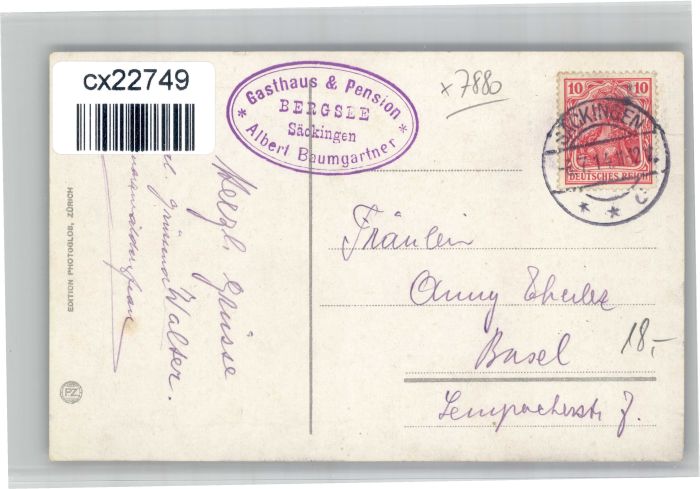 cx22749
Gasthaus & Pension
BERGSEE
Säckingen
* Albert Baumgartner *
x 7880
10 10
DEUTSCHES REICH
SÄCKINGEN
EDITION PHOTOGLOB, ZÜRICH
PZ
Herzl. Grüsse
Walter.
Fräulein
Anny Eberle
Basel
18,-
Sempacherstr. 7.